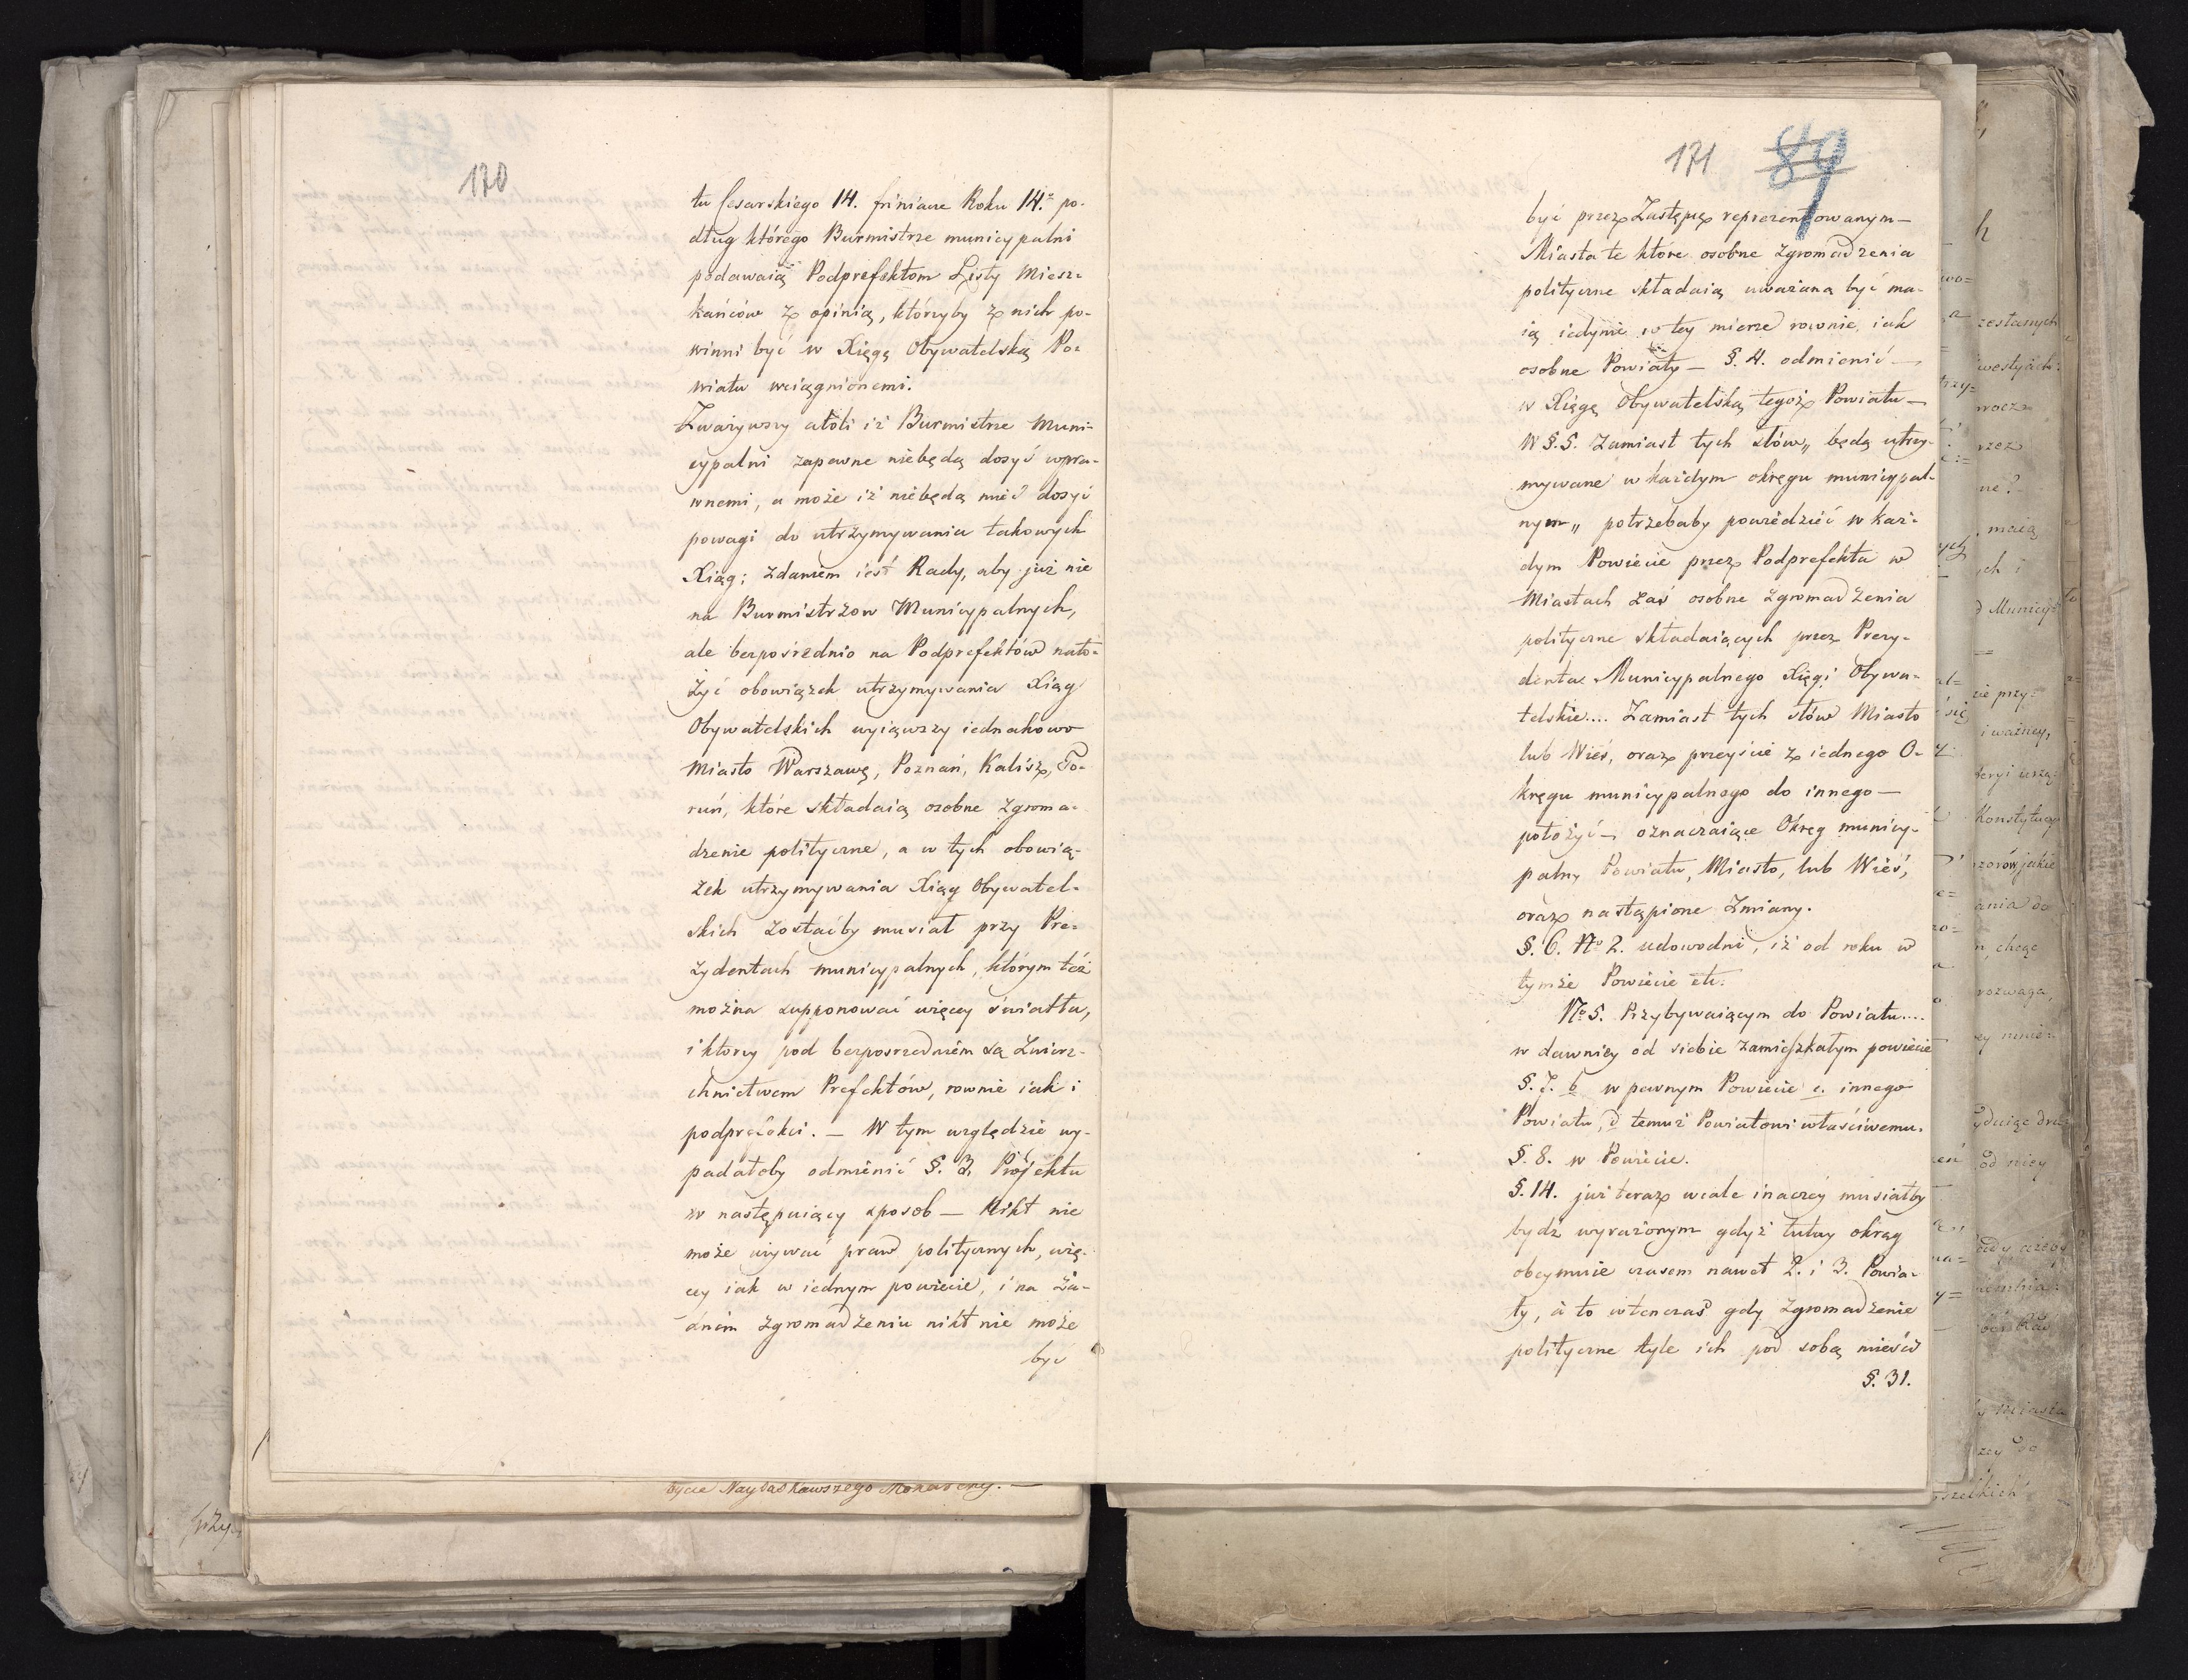 170
tu Cesarskiego 14. friniaire Roku 14.º po-
dług którego Burmistrze municypalni
podawaią Podprefektom Listy Miesz-
kańców z opinią, którzyby z nich po-
winni być w Xięgę Obywatelską Po-
wiatu wciągnionemi.
Zważywszy atoli iż Burmistrze Muni-
cypalni zapewne niebędą dosyć wpra-
wnemi, a może iż niebędą mieć dosyć
powagi do utrzymywania takowych
Xiąg; zdaniem iest Rady, aby już nie
na Burmistrzow Municypalnych,
ale bezpośrednio na Podprefektów nało-
żyć obowiązek utrzymywania Xiąg
Obywatelskich wyiąwszy iednakowo
Miasto Warszawę, Poznań, Kalisz, To-
ruń, które składaią osobne zgroma-
dzenie polityczne, a w tych obowią-
zek utrzymywania Xiąg Obywatel-
skich zostaćby musiał przy Pre-
zydentach municypalnych, którym też
można supponować więcey światła,
i ktorzy pod bezposrzedniém są Zwierz-
chnictwem Prefektów, rownie iak i
podprefekci. — W tym względzie wy-
padałoby odmienić §. 3. Projektu
w następuiący sposob — Nikt nie
może używać praw politycznych, wię-
cey iak w iednym powiecie, i na ża-
dném zgromadzeniu nikt nie może
być
bycie Nayłaskawszego Monarchy. —
171 89
być przez Zastępcę reprezentowanym —
Miasta te które osobne zgromadzenia
polityczne składaią uważana być ma-
ią iedynie w tey mierze rownie, iak
osobne Powiaty — §. 4. odmienić —
w Xięgę Obywatelską tegoż Powiatu —
W §. 5. zamiast tych słów „ będą utrzy-
mywane w każdym okręgu municypal-
nym „ potrzebaby powiedzieć w każ-
dym Powiecie przez Podprefekta w
Miastach zaś osobne zgromadzenia
polityczne składaiących przez Prezy-
denta Municypalnego Xięgi Obywa-
telskie.... Zamiast tych słów Miasto
lub Wieś, oraz przeyście z iednego O-
kręgu municypalnego do innego —
położyć — oznaczaiące Okręg municy-
palny Powiatu, Miasto, lub Wieś,
oraz nastąpione Zmiany.
§. 6. Nº 2. udowodni, iż od roku w
tymże Powiecie etc.
Nº 5. Przybywaiącym do Powiatu....
w dawniey od siebie zamieszkałym powiecie
§. 7. b w pewnym Powiecie c. innego
Powiatu, d temuż Powiatowi właściwemu.
§. 8. w Powiecie.
§. 14. już teraz wcale inaczey musiałby
bydź wyrażonym gdyż tutay okrąg
obeymuie czasem nawet 2. i 3. Powia-
ty, à to wtenczas gdy zgromadzenie
polityczne tyle ich pod sobą mieści
§. 31.